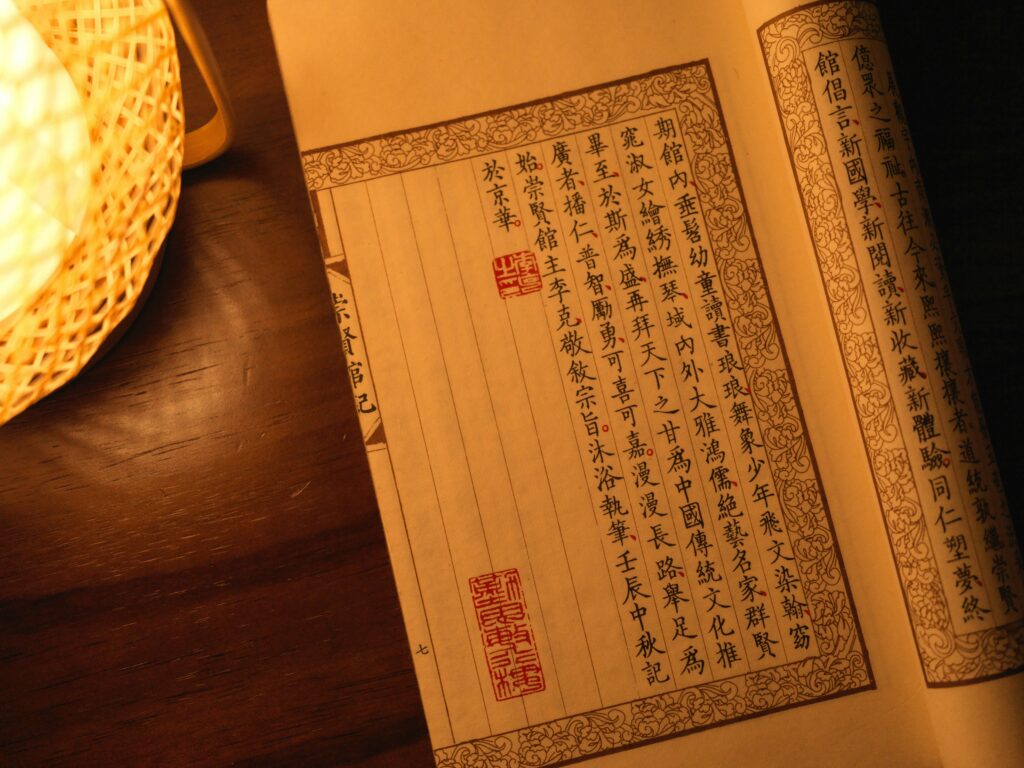 億眾之福祉古往今來熙熙攘攘者、道統孰繼崇賢
館倡言、新國學、新閱讀、新收藏、新體驗。同仁塑夢、終
期館內、垂髫幼童讀書琅琅、舞象少年飛文染翰、窈
窕淑女繪綉撫琴、域內外大雅鴻儒、絕藝名家、群賢
畢至、於斯為盛。再拜天下之甘為中國傳統文化推
廣者、播仁、普智、勵勇、可喜可嘉。漫漫長路、舉足為
始。崇賢館主李克敬敘宗旨。沐浴執筆、壬辰中秋記
於京華。
崇賢館記
七